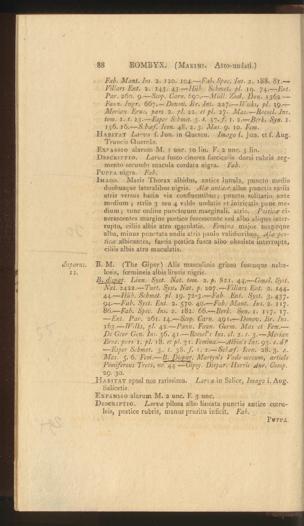 88 BOMBYX. (MAXIMI. Atro-undati.)
Fab. Mant. Ins. 2. 120. 104.—Fab. Spec. Ins. 2. 188. 81.—
Villars Ent. 2. 143. 43—Hüb. Schmet. pl. 19. 74.—Ent.
Par. 260. 9.—Scop. Carn. 690.—Müll. Zool. Dan. 1362—
Faun. Ingr. 667.—Donov. Br. Ins. 227.—Wilks, pl. 19.—
Merian Eruc. pars 2. pl. 22. et pl. 27. Mas.—Roesel. Ins.
HABITAT Larva f. Jun. in Quercu. Imago f. Jun. et f. Aug.
Truncis Quercûs.
EXPANSIO alarum M. 1 unc. 10 lin. F. 2 unc. 5 lin.
DESCRIPTIO. Larva fusco cinerea fasciculis dorsi rubris seg-
mento secundo macula cordata nigra. Fab.
PUPPA nigra. Fab.
IMAGO. Maris Thorax albidus, antice lunula, puncto medio
duobusque lateralibus nigris. Alæ anticæ albæ punctis variis
atris versus basin vix confluentibus; puncto solitario ante
medium; striis 3 seu 4 valde undatis et intricatis pone me-
dium; tunc ordine punctorum marginali, atris. Posticæ ci-
nerascentes margine postico fuscescente sed albo sæpius inter-
rupto, ciliis albis atro guttatis. Femina major magisque
alba, minus punctata undis atris paulo validioribus. Alæ pos-
ticæ albicantes, fascia postica fusca albo obsoleta interrupta,
ciliis albis atro maculatis.
dispar.
11.
B. M. (The Gipsy) Alis masculinis griseo fuscoque nebu-
losis, femineis albis lituris nigris.
B. dispar. Linn. Syst. Nat. tom 2. p. 821. 44.—Gmel. Syst.
Nat. 2422.—Turt. Syst. Nat. p. 207.—Villars Ent. 2. 144.
44.—Hüb. Schmet. pl. 19. 75-3.—Fab. Ent. Syst. 3. 437.
94.—Fab. Syst. Ent. 2. 570. 40.—Fab. Mant. Ins. 2. 117.
86.—Fab. Spec. Ins. 2. 182. 66.—Berk. Syn. 1. 137. 17.
—Ent. Par. 261. 14.—Scop. Carn. 491.—Donov. Br. Ins.
163.—Wilks, pl. 42.—Panz. Faun. Germ. Mas et Fem.—
HABITAT apud nos rarissima. Larva in Salice, Imago f. Aug.
Salicetis.
EXPANSIO alarum M. 2 unc. F. 3 unc.
DESCRIPTIO. Larva pilosa albo lineata punctis antice cœru-
leis, postice rubris, manus prurita inficit. Fab.
PUPPA